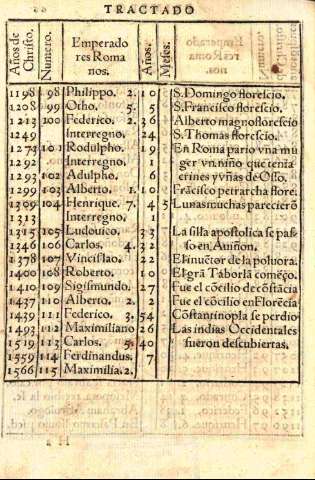 TRACTADO
Años de Christo. Numero. Emperadores Romanos. Años. Meses.
1198 98 Philippo. 2. 10 S. Domingo florescio.
1208 99 Otho. 5. 5 S. Francisco florescio.
1213 100 Federico. 2. 36 Alberto magno florescio
1249 Interregno. 24 S. Thomas florescio.
1273 101 Rodulpho. 19 En Roma pario vna mu
1292 Interregno. 1 ger vn niño que tenia
1293 102 Adulpho. 6 crines y vñas de Osso.
1299 103 Alberto. 1. 10 Frãcisco petrarcha flore.
1309 104 Henrique. 7. 4 5 Lunas muchas parecierõ
1313 Interregno. 1
1315 105 Ludouico. 33 La silla apostolica se pas-
1346 106 Carlos. 4. 32 so en Auiñon.
1378 107 Vincislao. 22 El inuẽtor de la poluora.
1400 108 Roberto. 10 El grã Taborlã começo.
1410 109 Sigismundo. 27 Fue el cõcilio de cõstãcia
1437 110 Alberto. 2. 2 Fue el cõcilio en Florẽcia
1439 111 Federico. 3. 54 Costantinopla se perdio
1493 112 Maximiliano 26 Las indias Occidentales
1519 113 Carlos. 5. 40 fueron descubiertas.
1559 114 Ferdinandus. 7.
1566 115 Maximilia. 2.